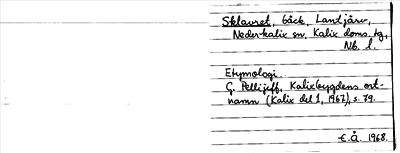 Sklauret, bäck, Lantjärv,
Nederkalix sn, Kalix doms. tg,
Nb. l.
Etymologi.
G. Pellijeff, Kalixbygdens ort-
namn (Kalix del 1, 1967), s. 79.
E.Å. 1968.